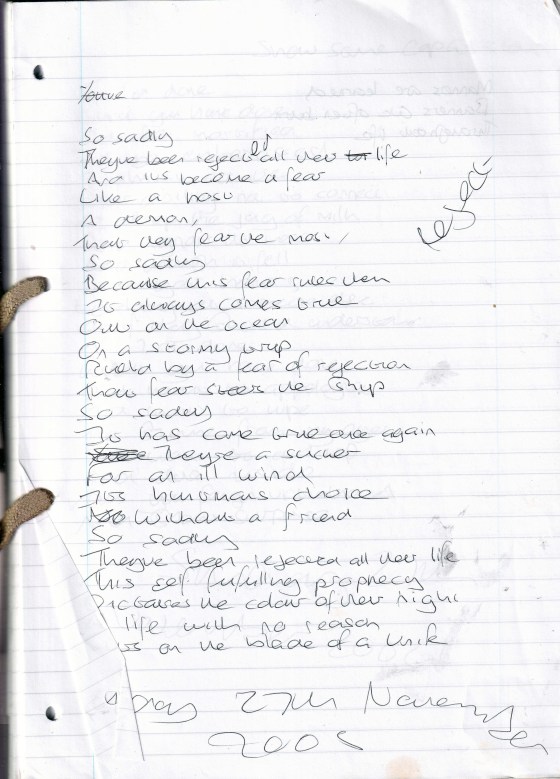 So sadly
Theyve been rejected all their life
And its become a fear
Like a host
A demon,
That they fear the most,
reject
So sadly
Because this fear rules then
It always comes true
Out on the ocean
On a stormy trip
Ruled by a fear of rejection
That fear steers the ship
So sadly
Its has come true once again
Theyre a sucker
For an ill wind
Its humans choice
Without a friend
So sadly
Theyve been rejected all their life
This self fulfilling prophecy
Dictates the colour of their night
life with no reason
on the blade of a knife
27th November
2005